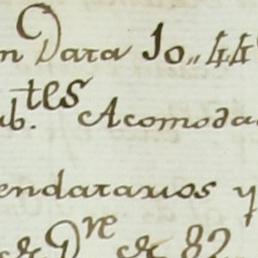 n Data Jo,, 44
ub. tes Acomoda
endatarios y
& Dre & 82